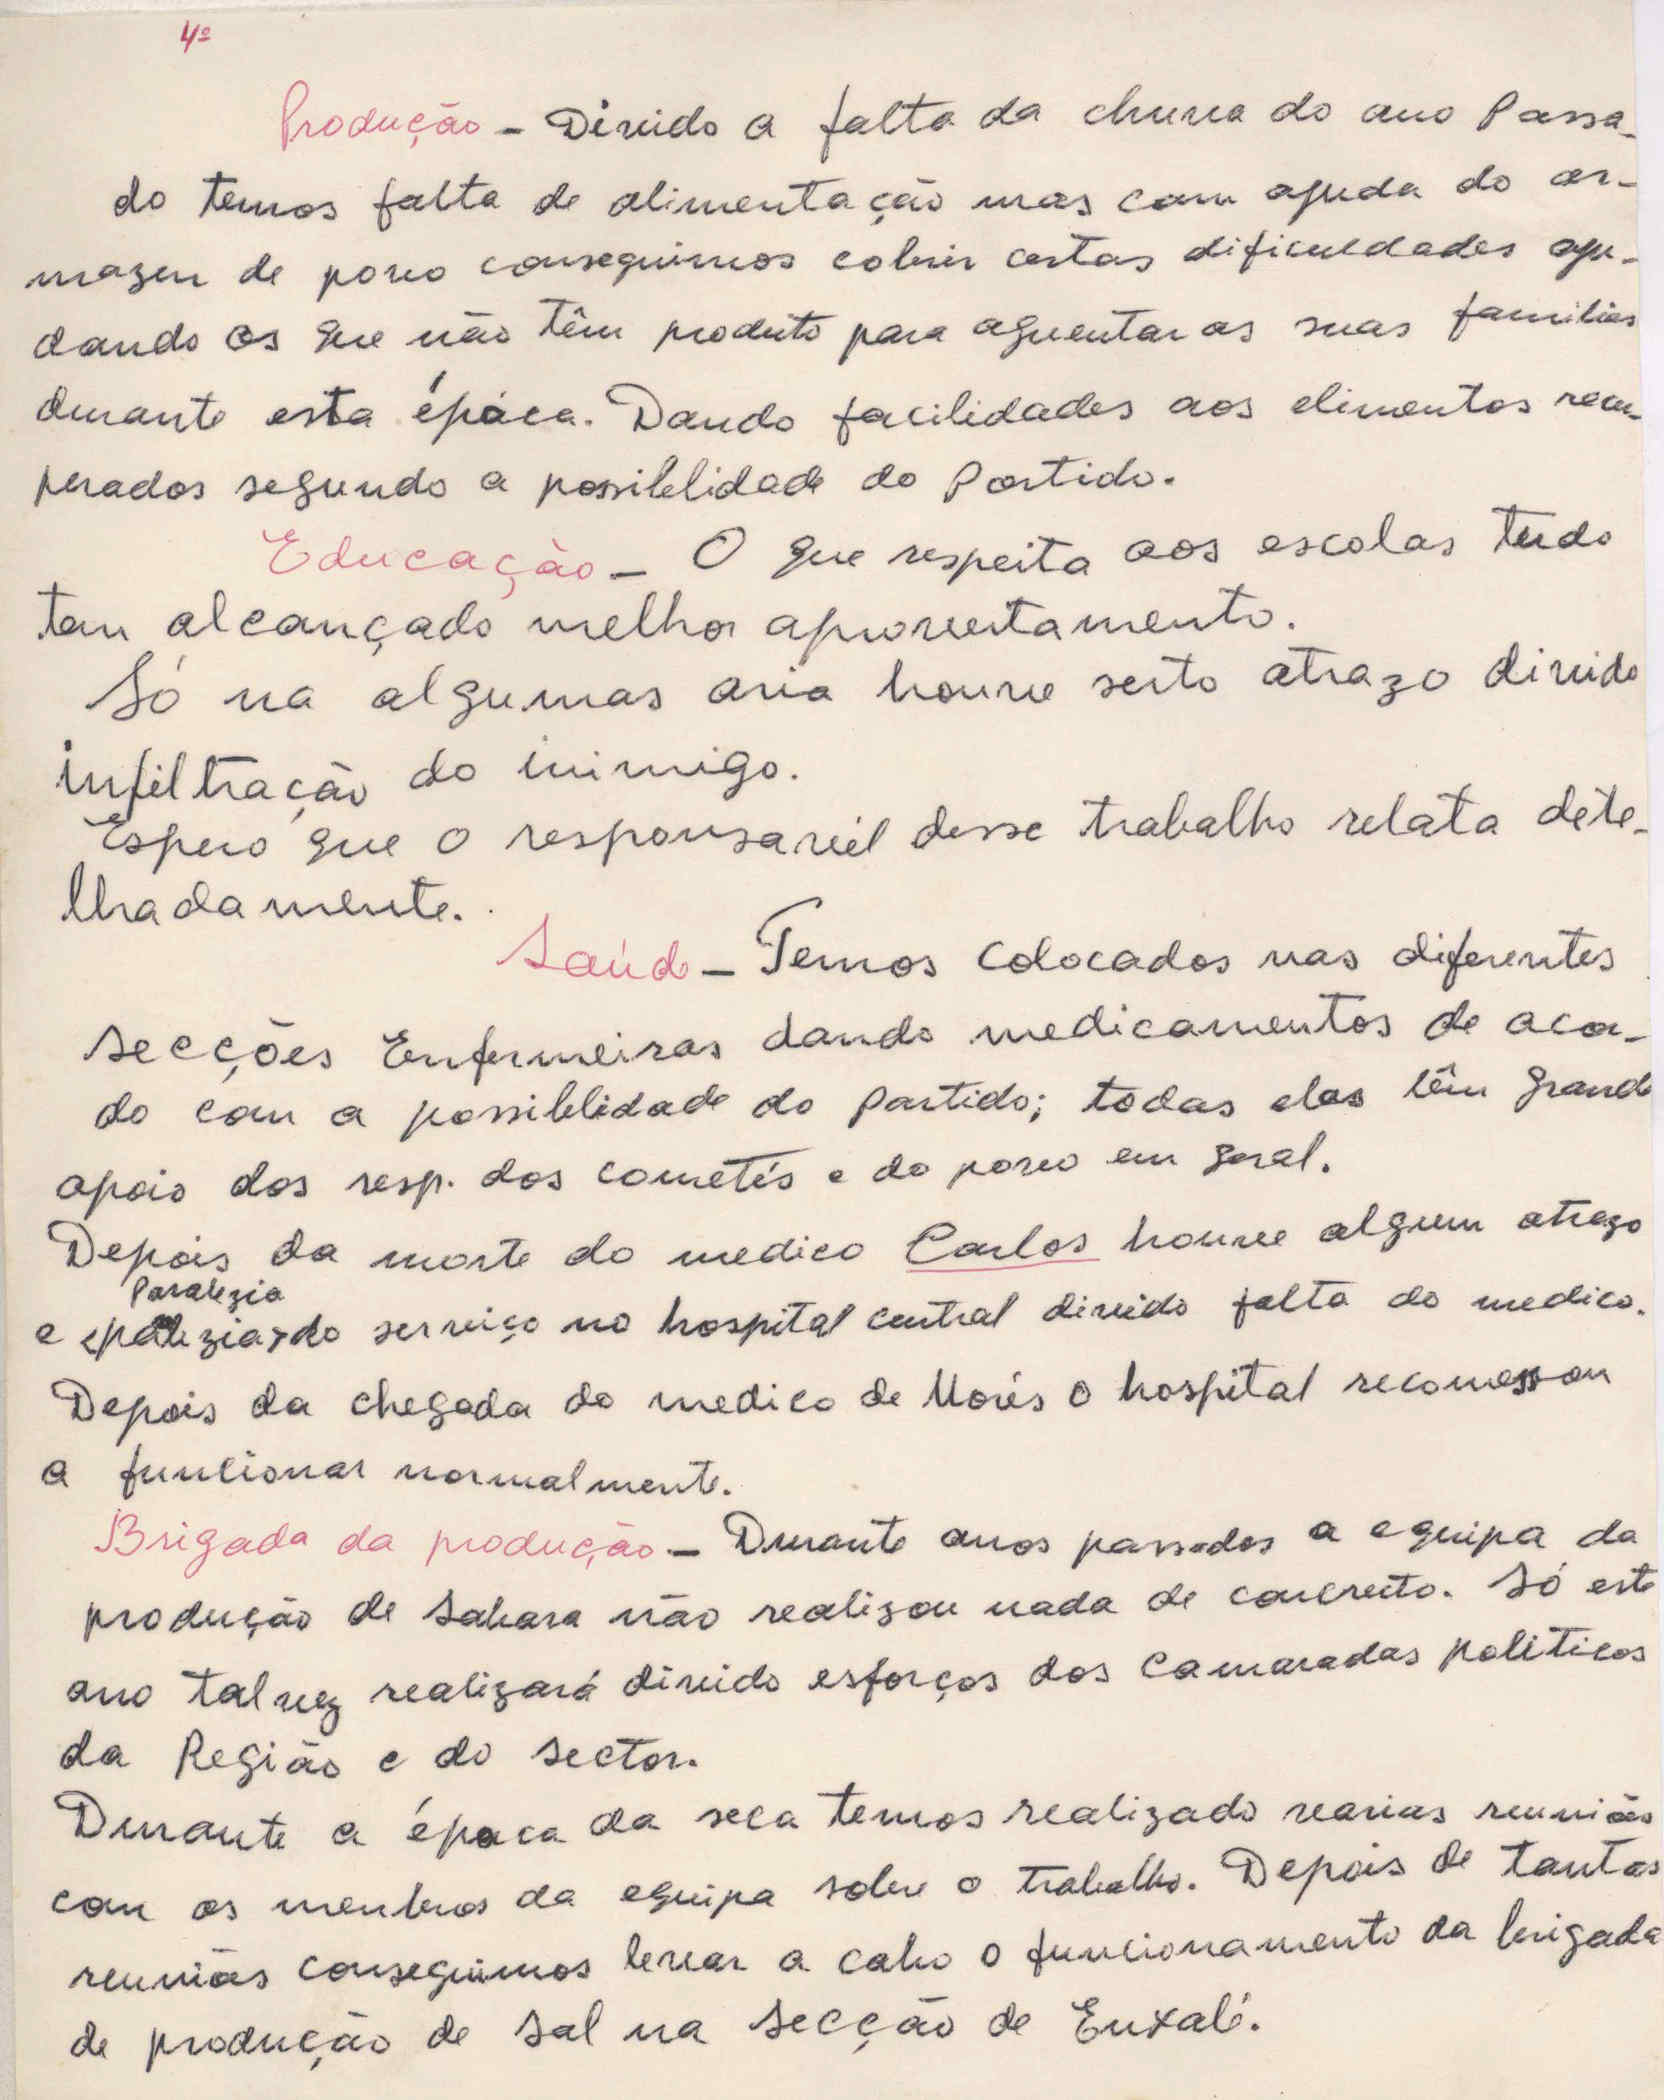 4º
Produção - Divido a falta da chuva do ano Passa-
do temos falta de alimentação mas com ajuda do ar-
mazen de povo conseguimos cobrir certas dificuldades aju-
dando os que não têm produto para aguentar as suas familias
durante esta época. Dando facilidades aos elimentos recu-
perados segundo a possiblidade do Partido.
Educação - O que respeita aos escolas tudo
tem alcançado melhor aproveitamento.
Só na algumas aria houve serto atrazo divido
infiltração do inimigo.
Espero que o responsavél desse trabalho relata dete-
lhadamente.
Saúde - Temos colocados nas diferentes
secções Enfermeiras dando medicamentos de acor-
do com a possiblidade do partido; todas elas têm grande
apoio dos resp. dos cometés e do povo em geral.
Depois da morte do medico Carlos houve algum atrazo
Paralizia
e do serviço no hospital central divido falta do medico.
Depois da chegada do medico de Morés o hospital recomessou
a funcionar normalmente.
Brigada da produção - Durante anos passados a equipa da
produção de Sahara não realizou nada de concreito. Só este
ano talvez realizará divido esforços dos camaradas politicos
da Região e do sector.
Durante a época da seca temos realizado varias reuniões
com os membros da equipa sobre o trabalho. Depois de tantas
reuniões conseguimos levar a cabo o funcionamento da brigada
de produção de sal na secção de Enxalé.